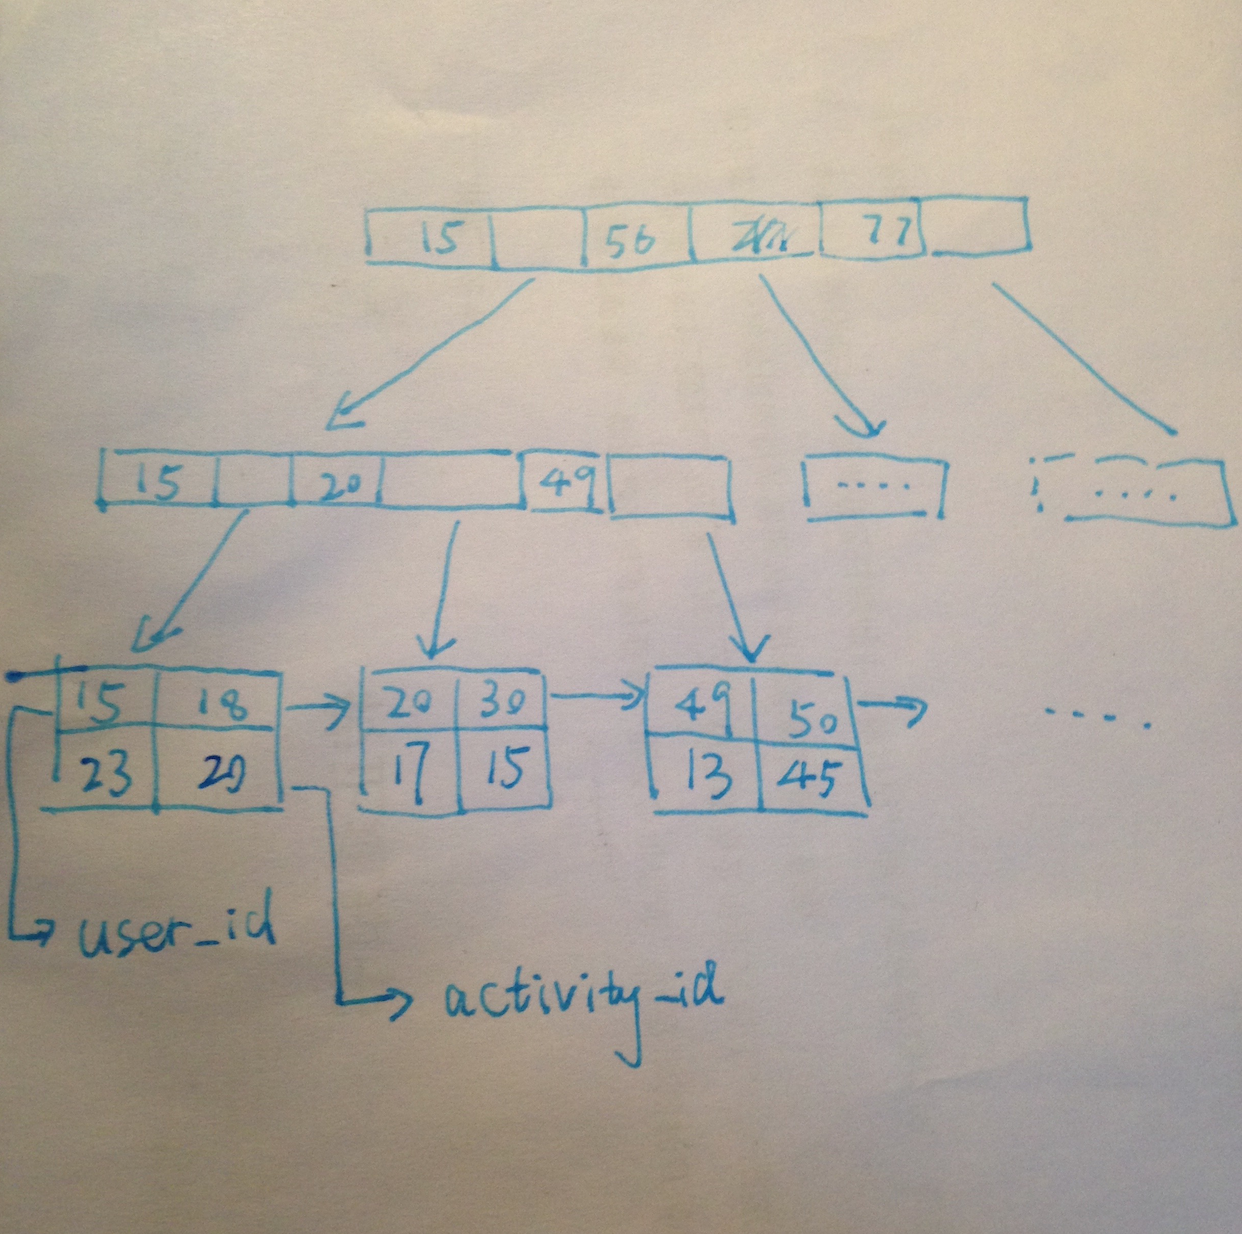 15 56 77
15 20 49 .... ....
15 18 20 30 49 50 ....
23 20 17 15 13 45
user_id
activity_id